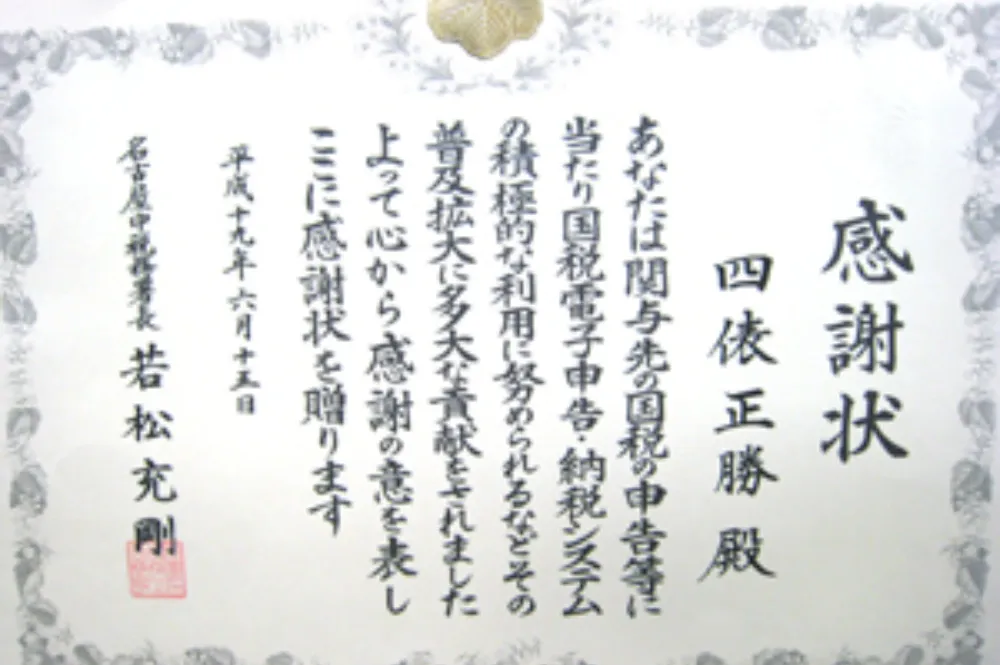 感謝状
四俵正勝殿
あなたは関与先の国税の申告等に
当たり国税電子申告・納税システム
の積極的な利用に努められるなどその
普及拡大に多大な貢献をされました
よって心から感謝の意を表し
ここに感謝状を贈ります
平成十九年六月十五日
名古屋中税務署長 若松充剛